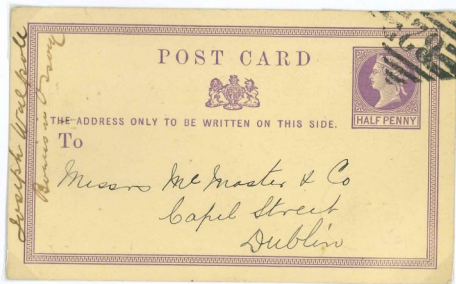 POST CARD
THE ADDRESS ONLY TO BE WRITTEN ON THIS SIDE.
HALF PENNY
To
Messrs McMaster & Co
Capel Street
Dublin
Joseph Walpole